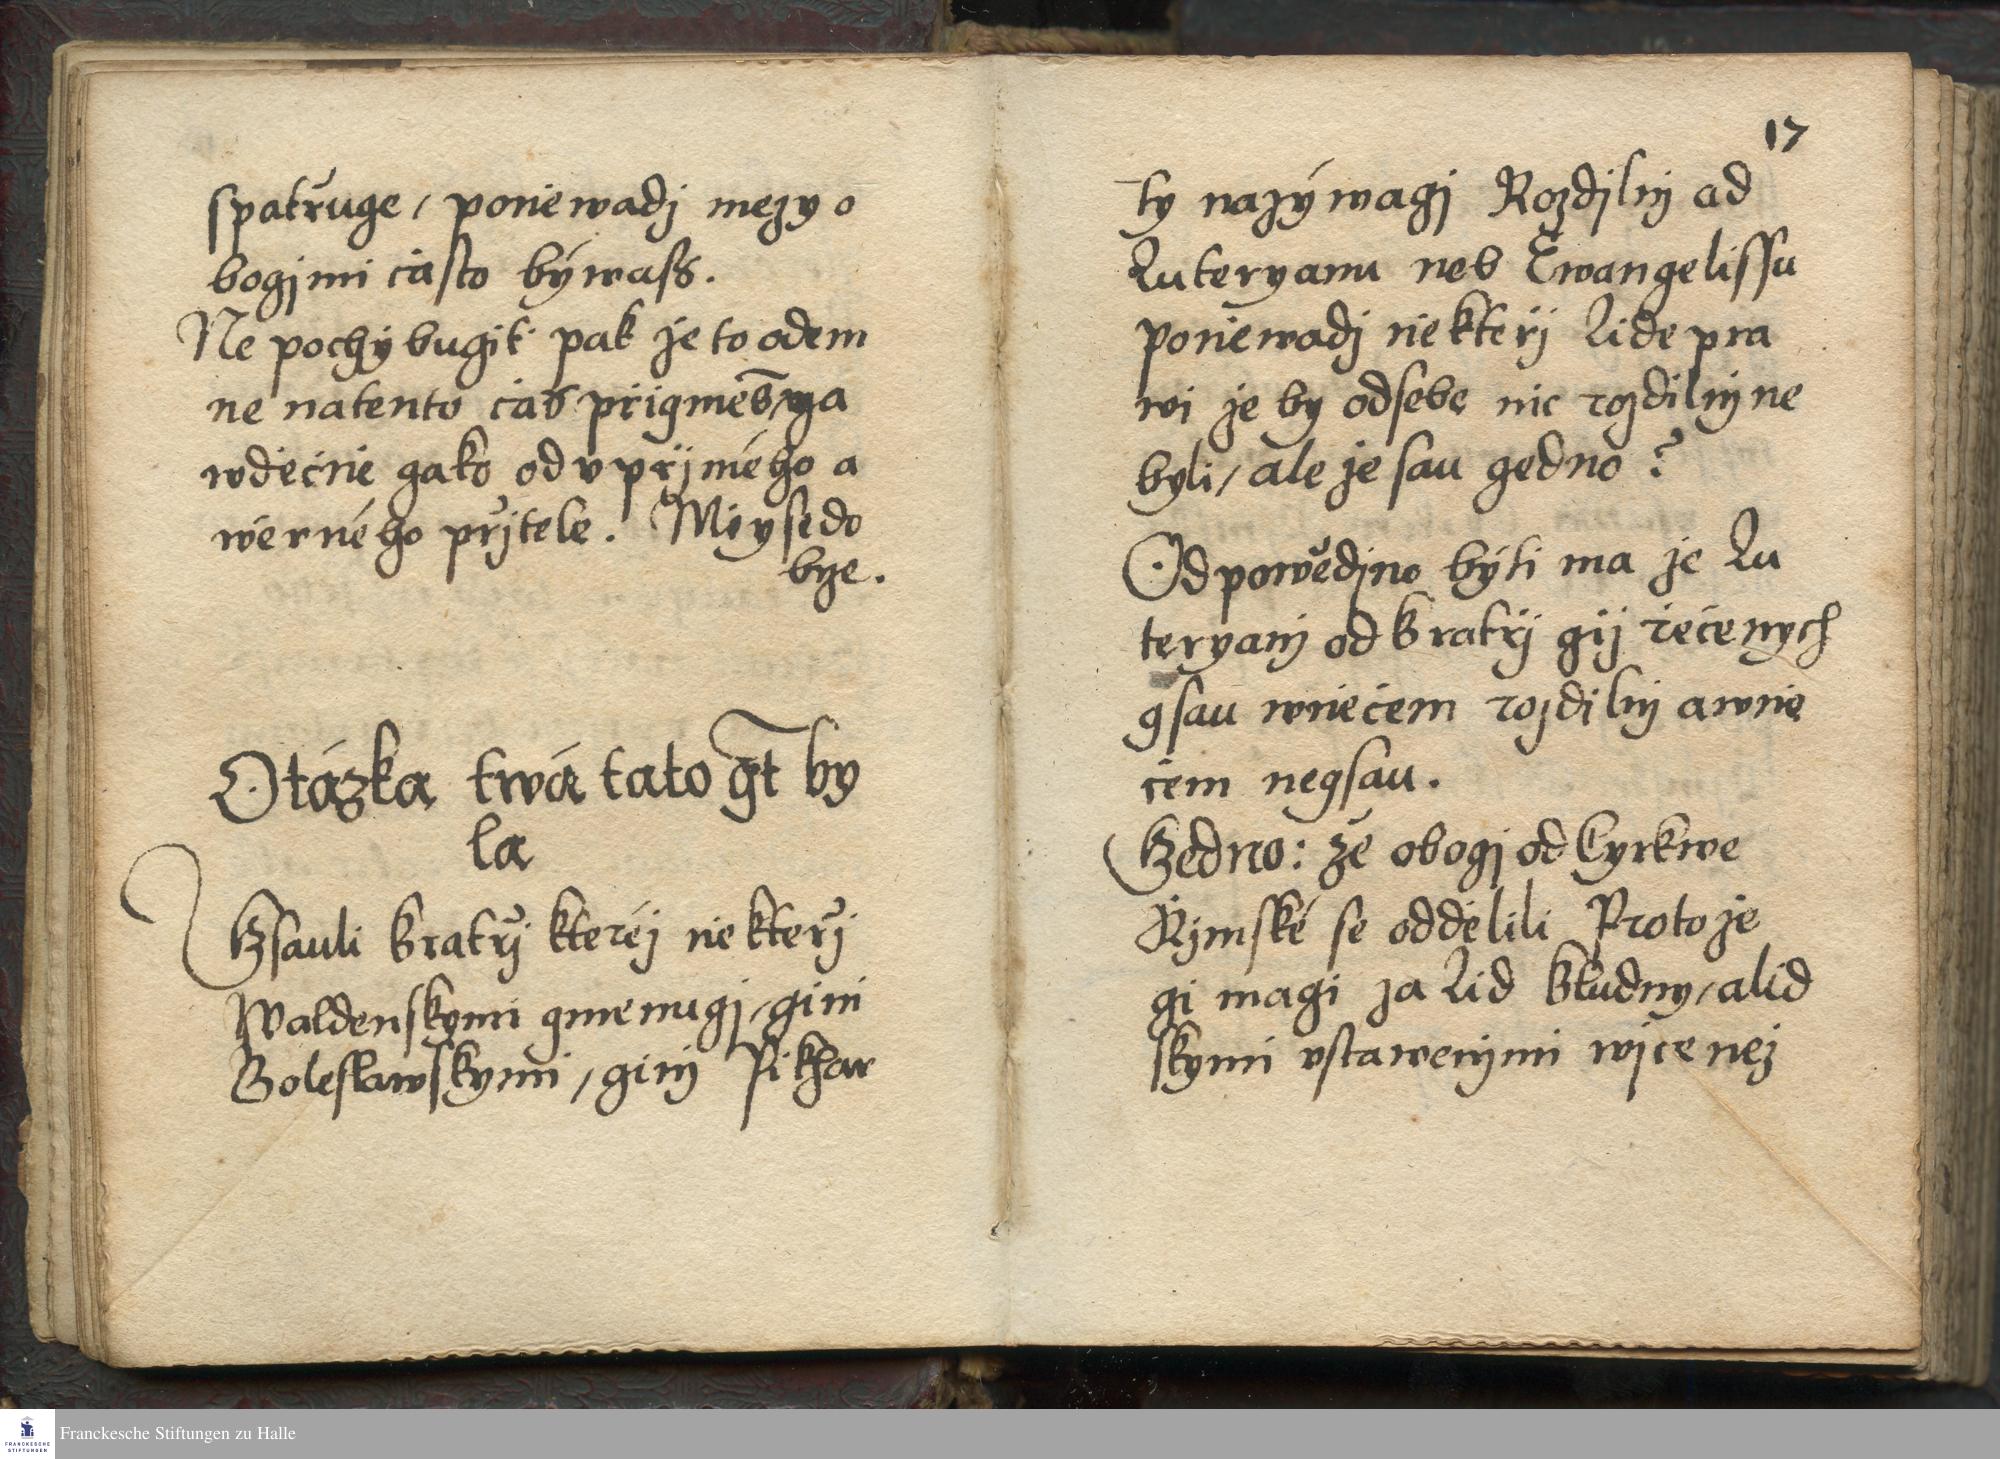 spatřuge / poniewadz mezy o
bogjmi ċasto býwaſs.
Ne pochybugiť pak że to odem
ne natento ċas přigmeš a
wdieċnie gako od vpřjmého a
wierného přjtele. Miy se do
bże.
Otázka twá tato gt̄ by
la
Gsauli Bratřj kteréj niekteřj
Waldenskymi gmenugj, ginj
Boleslawskymi, ginj Pikhar
17
ty nazýwagj Rozdjlnj od
Luteryanu neb Ewangelissu
poniewadz niekteřj Lide pra
wi że by odsebe nic rozdilnj ne
byli, ale że sau gedno?
Odpowědjno býti ma że Lu
teryanj od Bratřj giż řeċenych
gsau wnieċem rozdilnj a wnie
ċem negsau.
Gedno: że obogj od Cyrkwe
Řjmské se oddělili Proto że
gi magi za Lid Bludny, a lid
skymi vstawenjmi wjce neż
Franckesche Stiftungen zu Halle
FRANCKESCHE
STIFTUNGEN